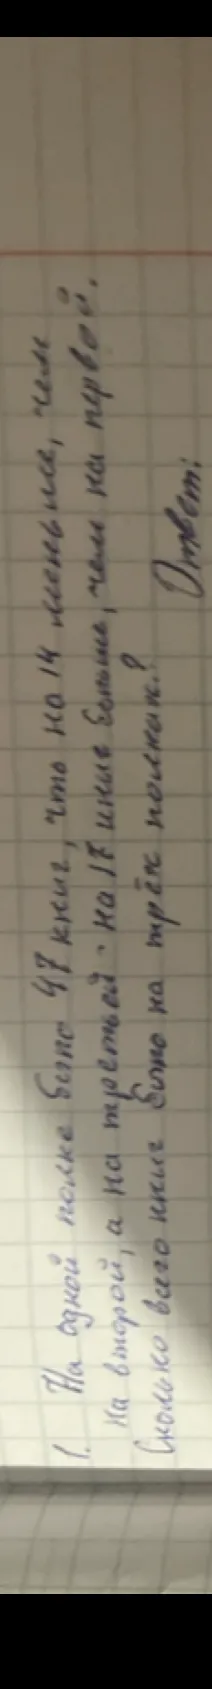 1. На одной полке было 47 книг, что на 14 меньше, чем
на второй, а на третьей - на 17 книг больше, чем на первой.
Сколько всего книг было на трёх полках?
Ответ: